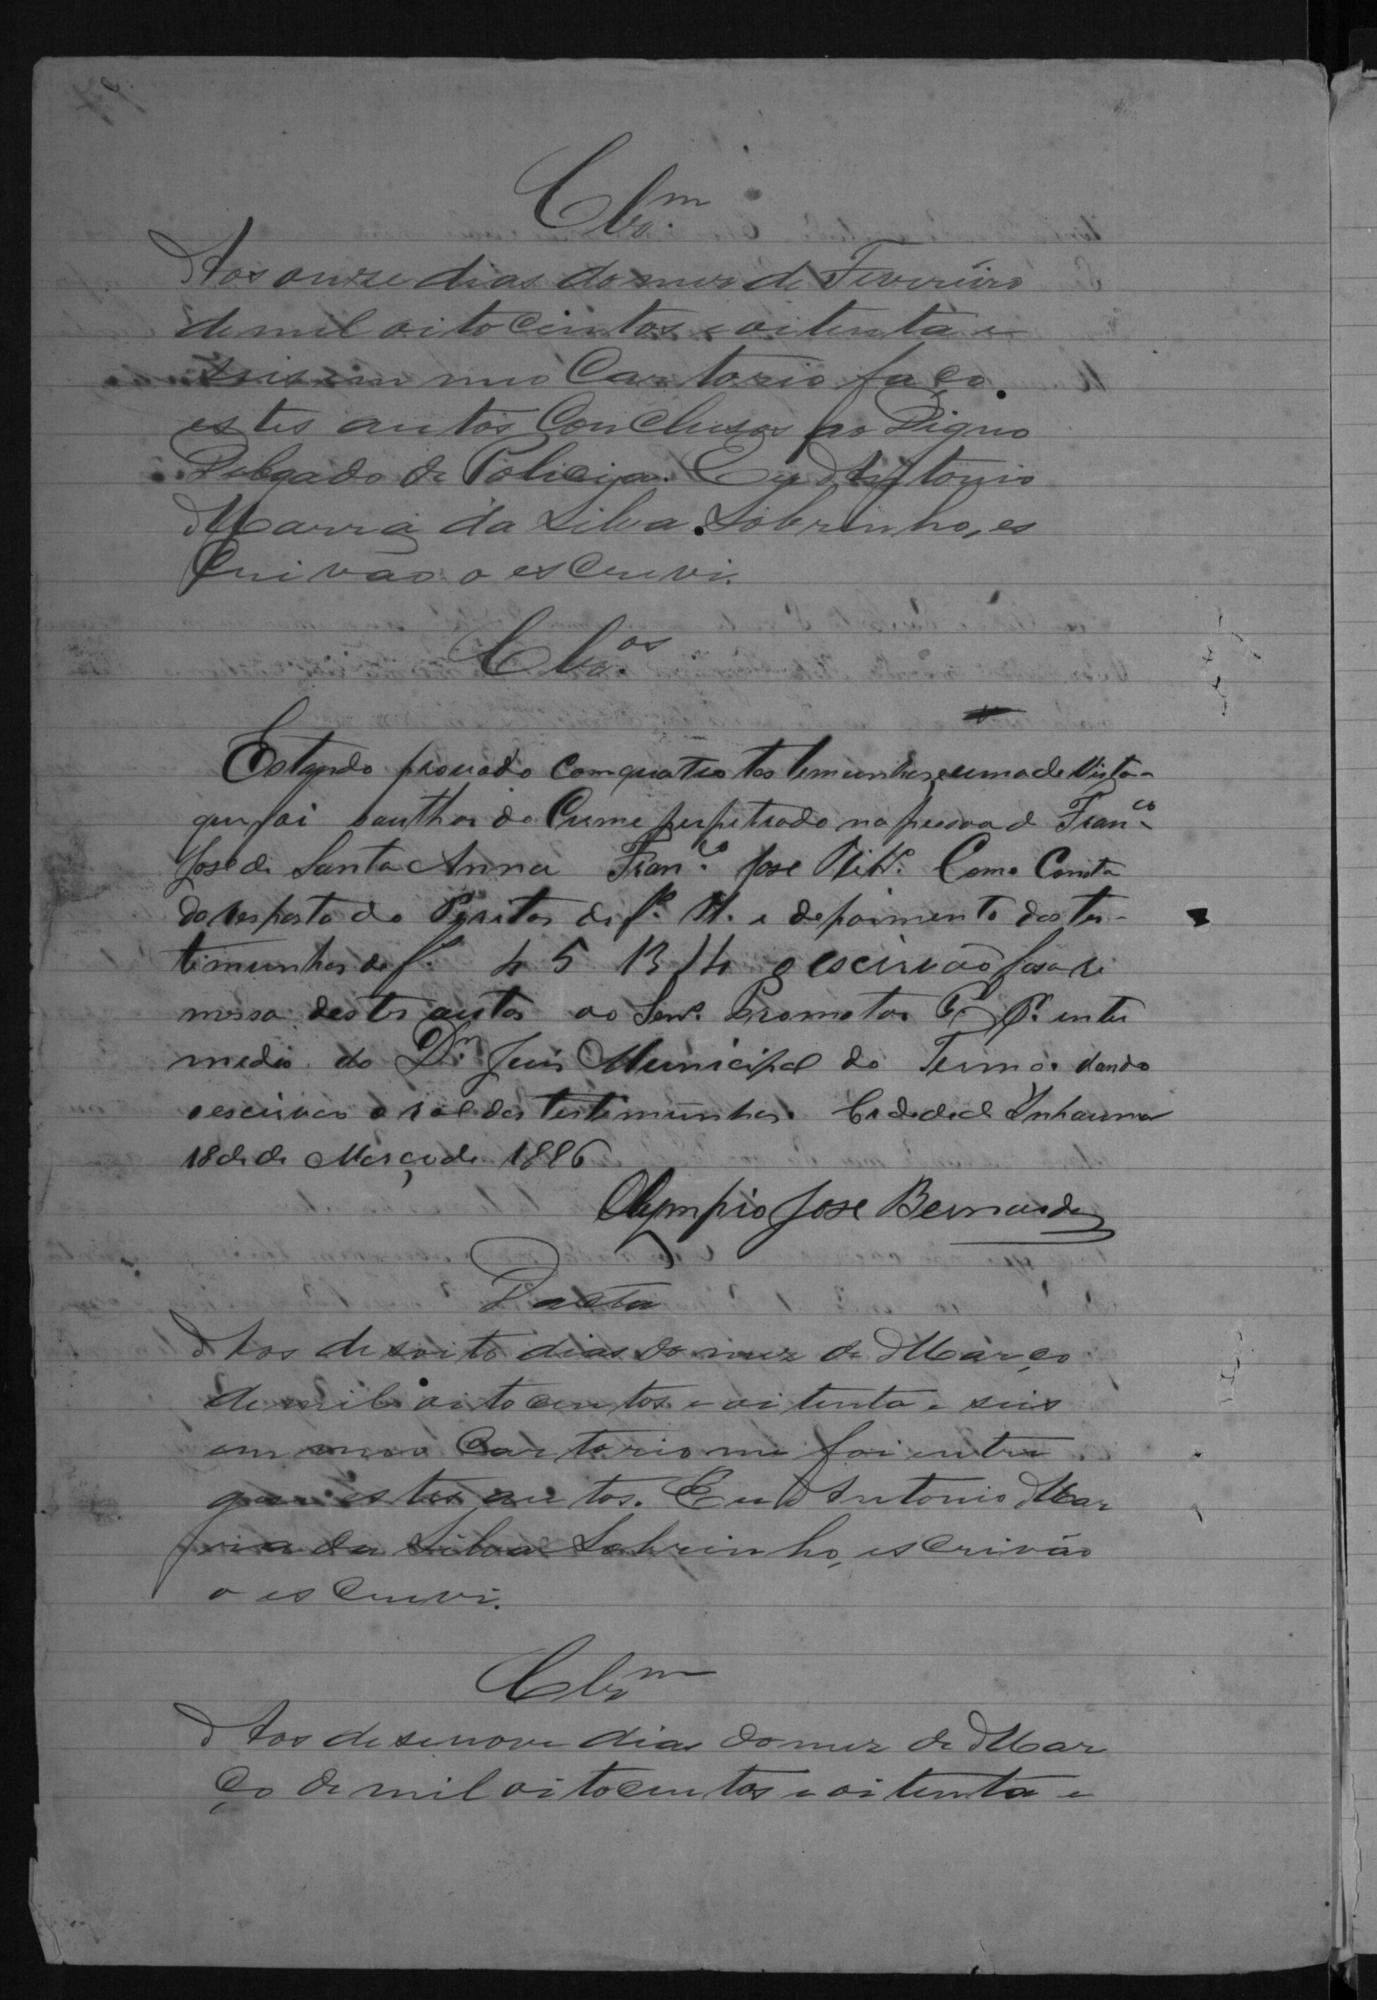 Clz.m
Aos onze dias do mez de Fevereiro
de mil oito centos e oitenta e
seis em meo Cartorio faço
estes autos Concluzos ao Digno
Delegado de Policia. Eu Antonio
Marra da Silva Sobrinho, es
Crivão o escrevi.
Clz.os
Estando provado com quatro testemunhas e uma de vista
que foi o author do Crime perpetrado na pessoa de Fran.co
José de Santa Anna Fran.co Jose Como Consta
da resposta do Peritos de f. e depoimento das tes-
timunhas de f. 4 5 13 14 o escrivão fasa re
messa destes autos ao Senr. Promotor P. P. enter
medio do D.r Juis Municipal do Termo. dando
o escrivão o rol das testimunhas. Cidade de Inhauma
18 de de Março de 1886
Olympio Jose Bernardes
Dacta
Aos desoito dias do mez de Março
de mil oito centos e oitenta e seis
em meo Cartorio me foi entre
gue estes autos. Eu Antonio Mar
ra da Silva Sobrinho, escrivão
o escrevi.
Clz.m
Aos desenove dias do mez de Mar
ço de mil oito centos e oitenta e